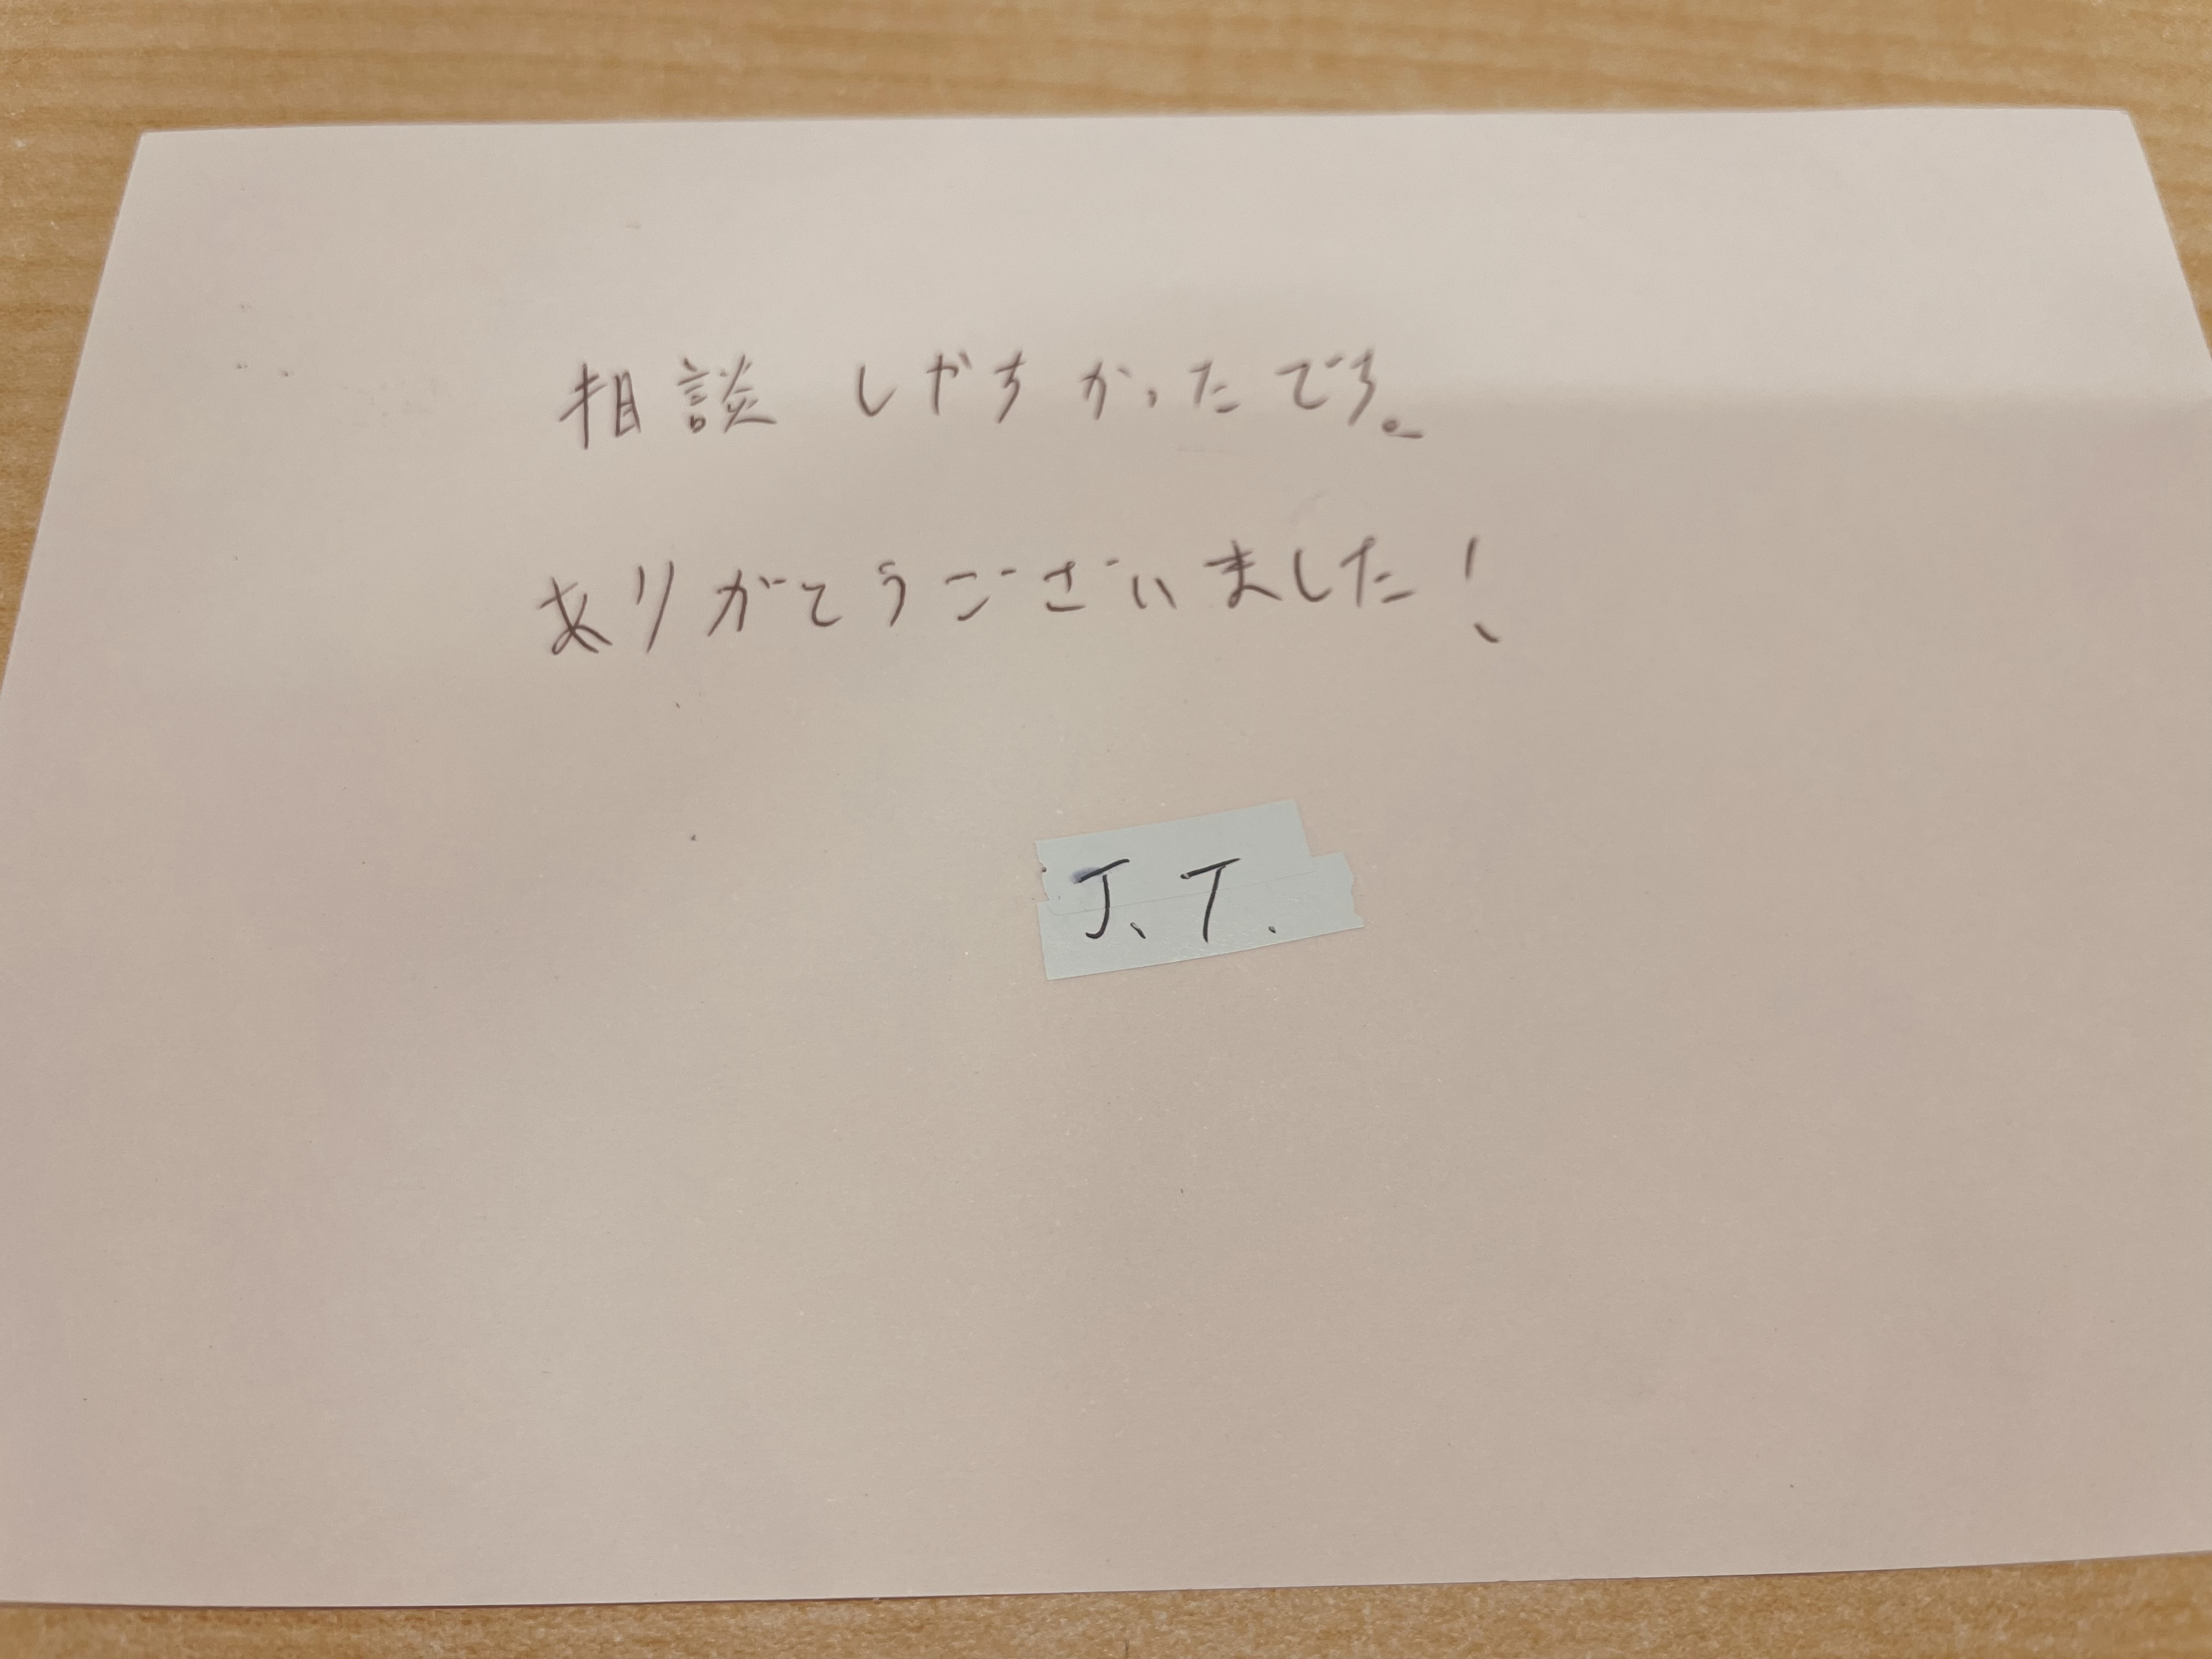 相談しやすかったです。
ありがとうございました!
J.T.